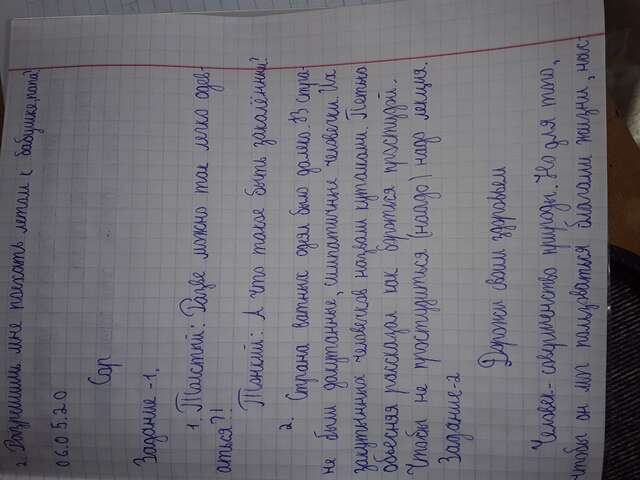 2. Разрешиш мне поехать летом к бабушке, папа?
06.05.20
Сор
Задание -1.
1. Толстый: Разве можно так легко одев-
аться?!
Тонкий: А что такое быть закалённый?
2. Страна ватных одеял было далеко. В стра-
не были закутанные, симпатичные человечки. Их
закутынных человечков назвали кутышами. Петько
объясняя рассказал как бороться простудой.
Чтобы не простудиться (надо) надо лекция.
Задание-2
Дорожи своим здоровьем
Человек-совершенство природы. Но для того,
чтобы он мог пользоваться благами жизни, нас-